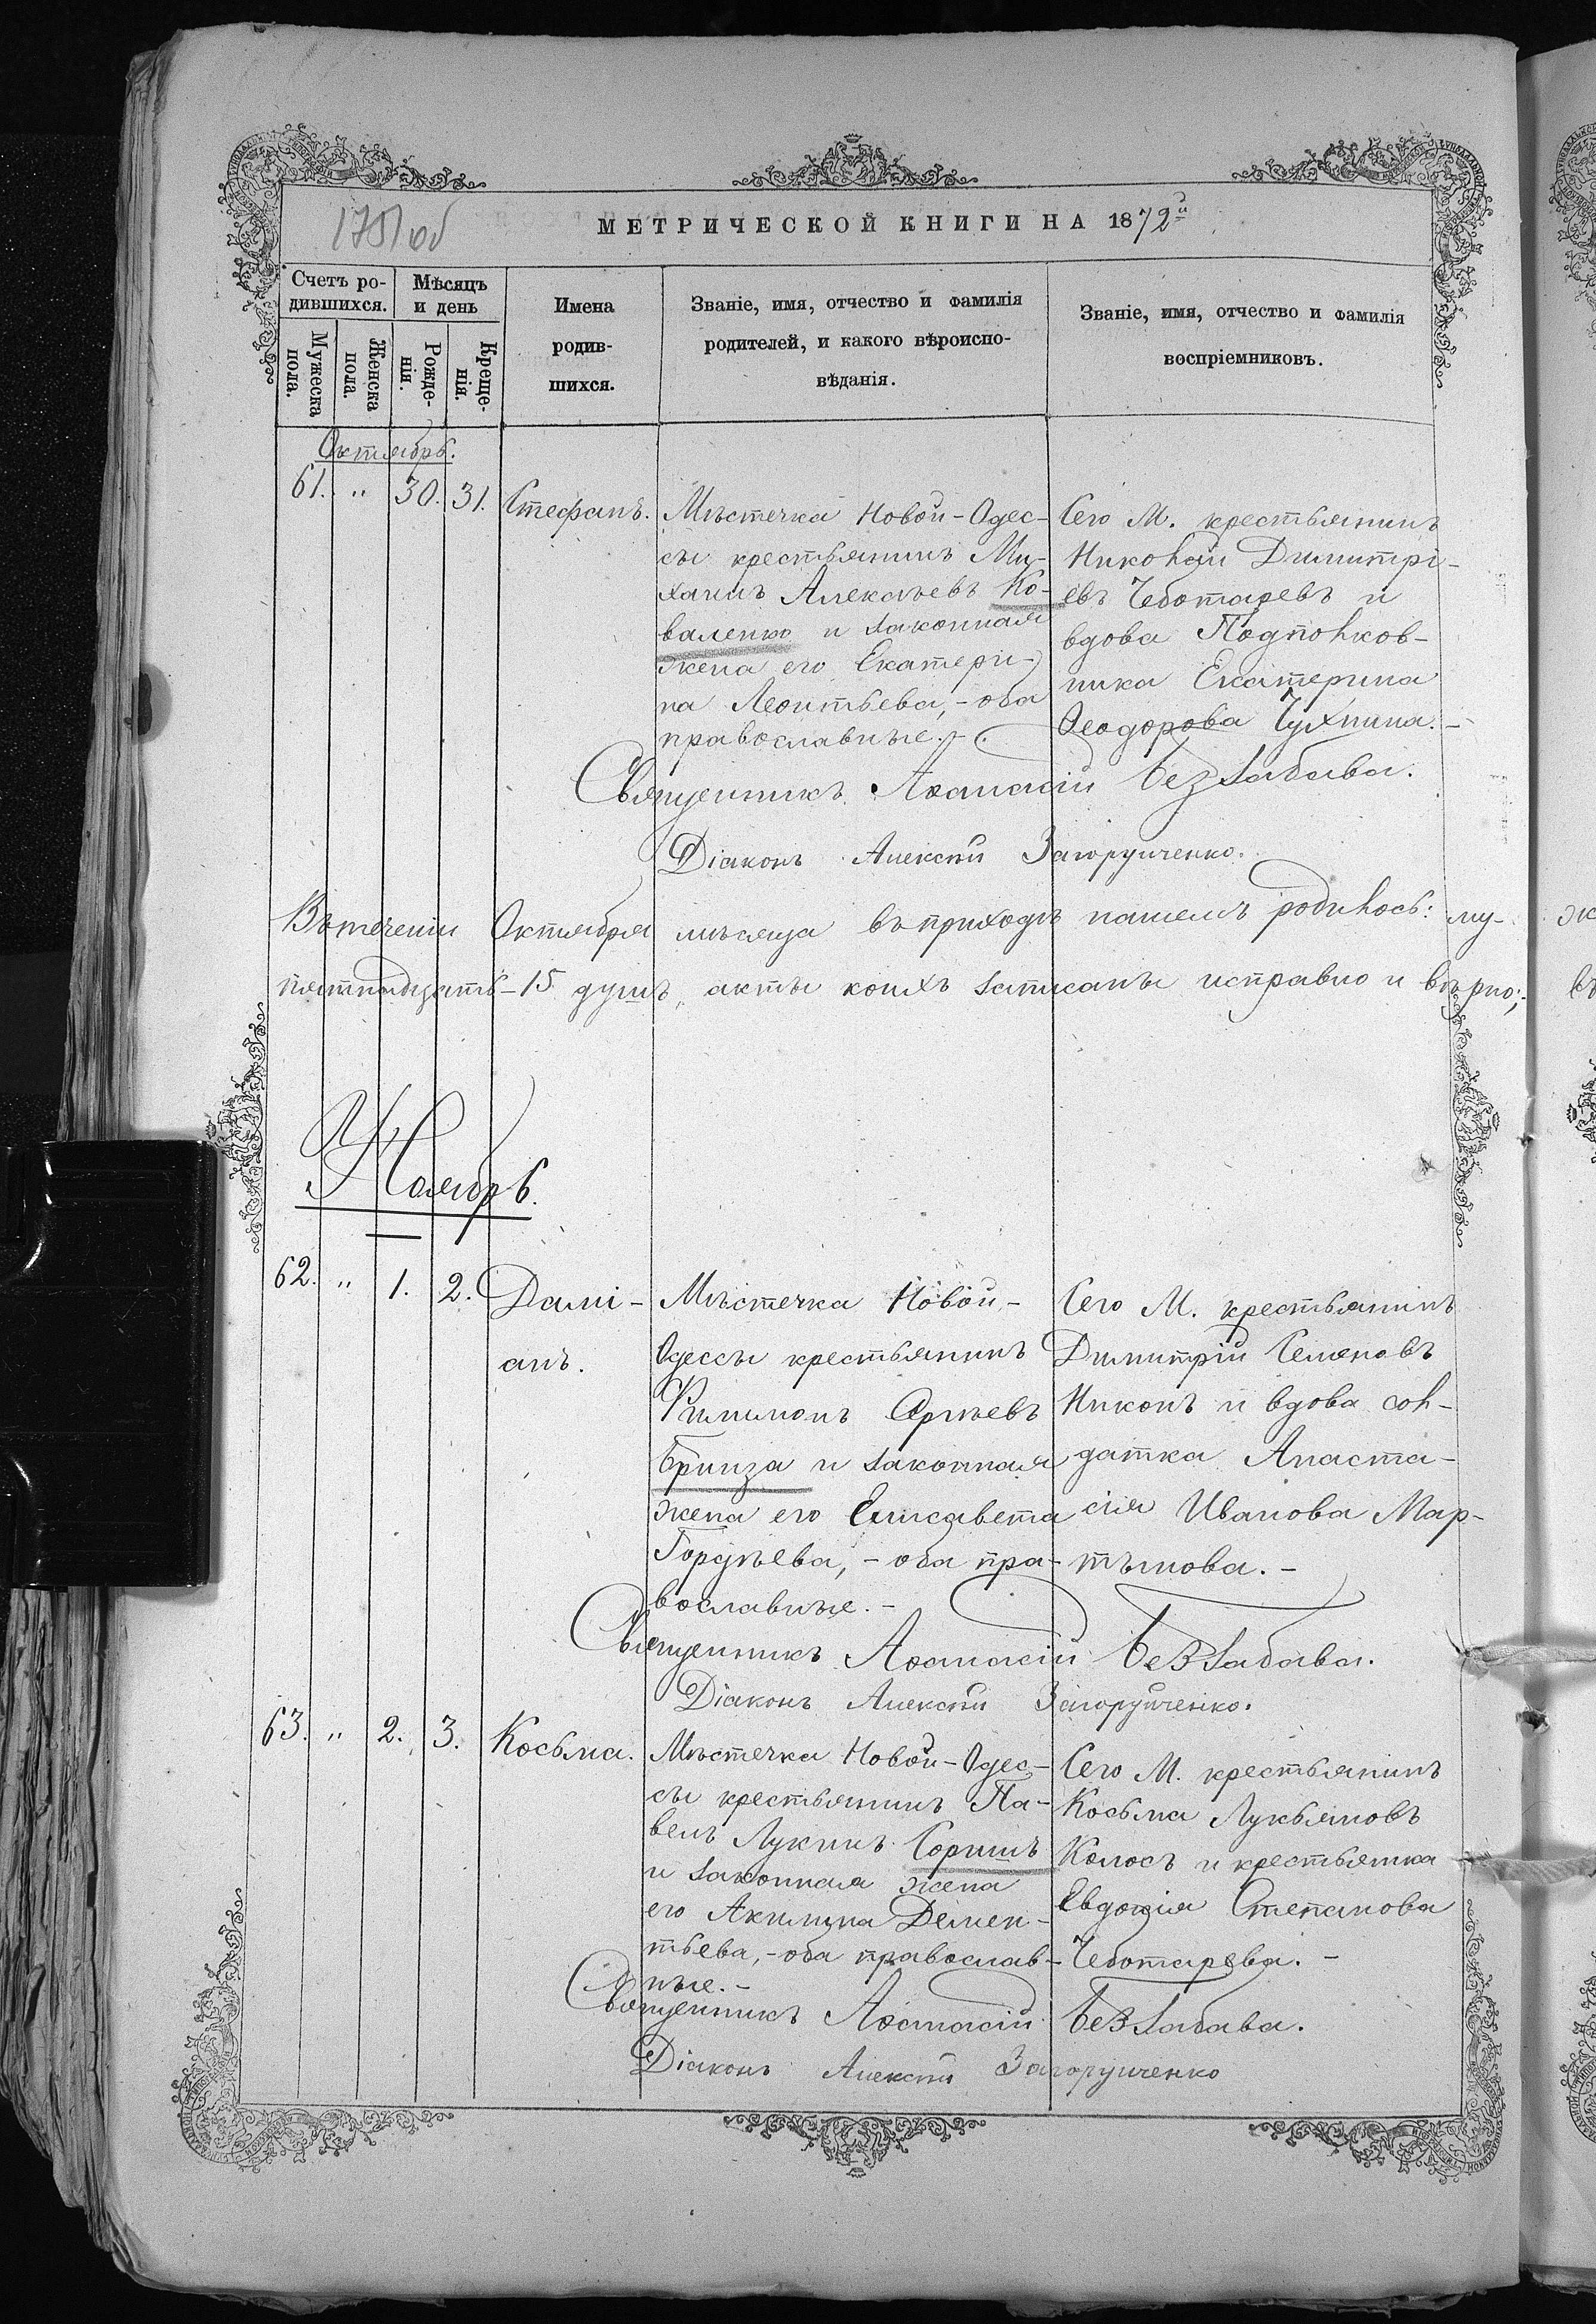 175 об
МЕТРИЧЕСКОЙ КНИГИ НА 1872й
Счетъ ро-
дившихся.
Мѣсяцъ
и день
Мужеска
пола.
Женска
пола.
Рожде-
нія.
Креще-
нія.
Имена
родив-
шихся.
Званіе, имя, отчество и фамилія
родителей, и какого вѣроиспо-
вѣданія.
Званіе, имя, отчество и фамилія
воспріемниковъ.
Октябрь.
61. " 30. 31. Стефанъ.
Мѣстечка Новой-Одес-
сы крестьянинъ Ми-
хаилъ Алексѣевъ Ко-
валенко и законная
жена его Екатери-
на Леонтьева,- оба
православные.-
Сего М. крестьянинъ
Николай Димитрі-
евъ Чеботаревъ и
вдова Подполков-
ника Екатерина
Ѳеодорова Чухнина.-
Священникъ Аѳанасій Беззабава.
Діаконъ Алексѣй Загоруйченко.
Въ теченіи Октября мѣсяца въ приходѣ нашемъ родилось: му-
пятнадцать-15 душъ, акты коихъ записаны исправно и вѣрно;-
Ноябрь.
62. " 1. 2. Дамі-
анъ.
Мѣстечка Новой-
Одессы крестьянинъ
Филимонъ Сргѣевъ
Бринза и законная
жена его Елисавета
Гордѣева,- оба пра-
вославные.-
Сего М. крестьянинъ
Димитрій Семеновъ
Никонъ и вдова сол-
датка Анаста-
сія Иванова Мар-
тынова.-
Священникъ Аѳанасій Беззабава.
Діаконъ Алексѣй Загоруйченко.
63. " 2. 3. Косьма.
Мѣстечка Новой-Одес-
сы крестьянинъ Па-
велъ Лукинъ Соришъ
и законная жена
его Акилина Демен-
тьева,- оба православ-
ные.-
Сего М. крестьянинъ
Косьма Лукьяновъ
Колосъ и крестьянка
Евдокія Степанова
Чеботарева.-
Священникъ Аѳанасій Беззабава.
Діаконъ Алексѣй Загоруйченко